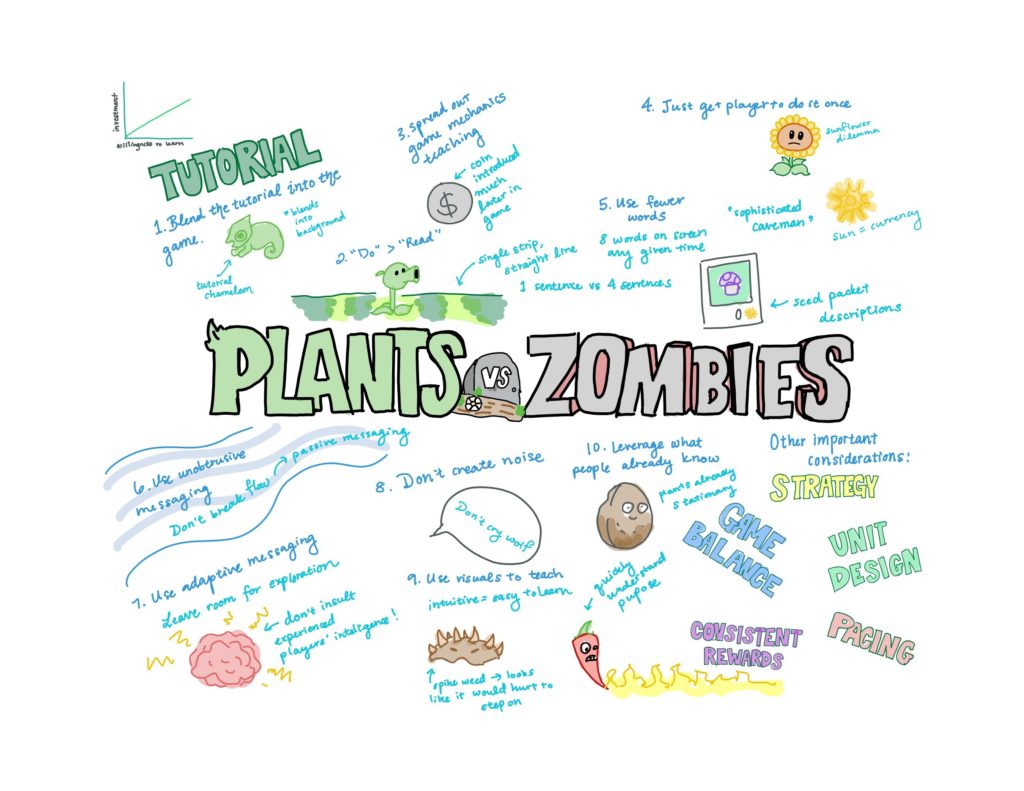 investment
willingness to learn
TUTORIAL
1. Blend the tutorial into the
game.
"blends
into
background
tutorial
chameleon
2. "Do" > "Read"
single strip,
straight line
3. Spread out
game mechanics
teaching
$
coin
introduced
much
later in
game
4. Just get player to do it once
sunflower
dilemma
sun = currency
5. Use fewer
words
8 words on screen
any given time
1 sentence vs 4 sentences
"sophisticated
caveman"
seed packet
descriptions
PLANTS VS ZOMBIES
6. Use unobtrusive
messaging
Don't break flow
passive messaging
7. Use adaptive messaging
Leave room for exploration
don't insult
experienced
players' inteligence!
8. Don't create noise
Don't cry wolf
9. Use visuals to teach
intuitive = easy to learn
spike weed → looks
like it would hurt to
step on
10. Leverage what
people already know
plants already
stationary
quickly
understand
pupose
Other important
considerations:
STRATEGY
GAME
BALANCE
UNIT
DESIGN
CONSISTENT
REWARDS
PACING